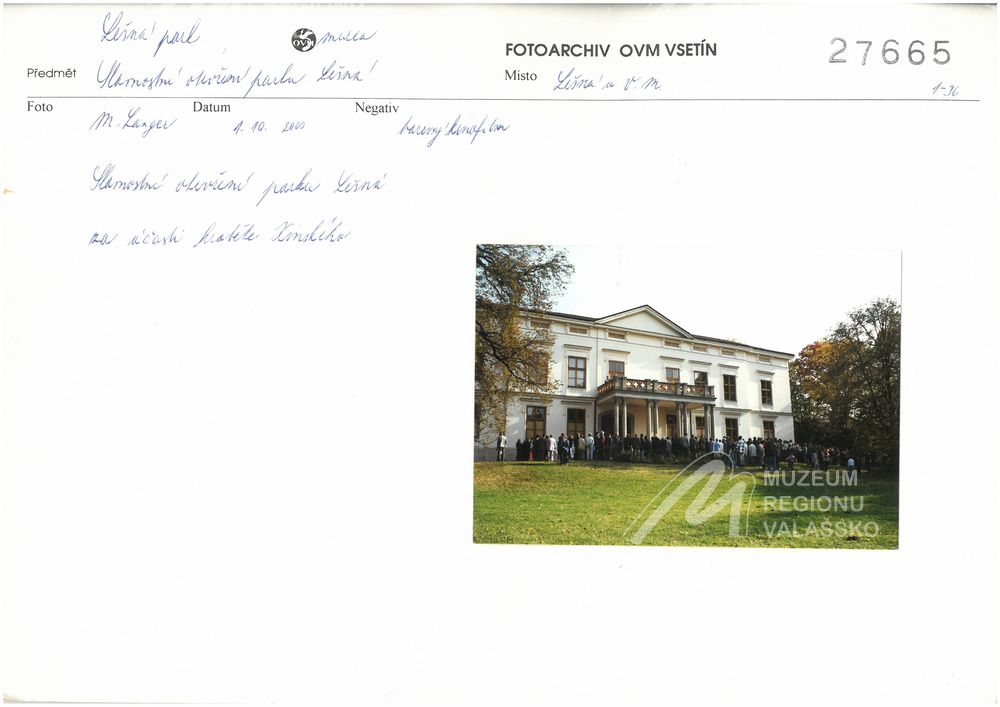 Lešná park
OVM muzea
FOTOARCHIV OVM VSETÍN
27665
Předmět Slavnostní otevření parku Lešná
Místo Lešná u V. M.
1-36
Foto Datum Negativ
M. Langer 1. 10. 2000 barevný kinofilm
Slavnostní otevření parku Lešná
za účasti hraběte Kinského
MUZEUM
REGIONU
VALAŠSKO